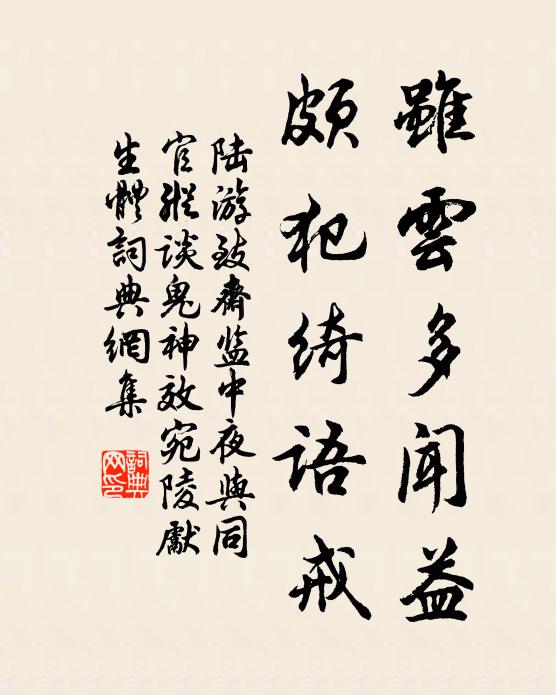 雖雲多聞益
頗犯綺語戒
陆游致齋监中夜與同
官縱谈鬼神效宛陵獻
生體詞典網集
詞典網印